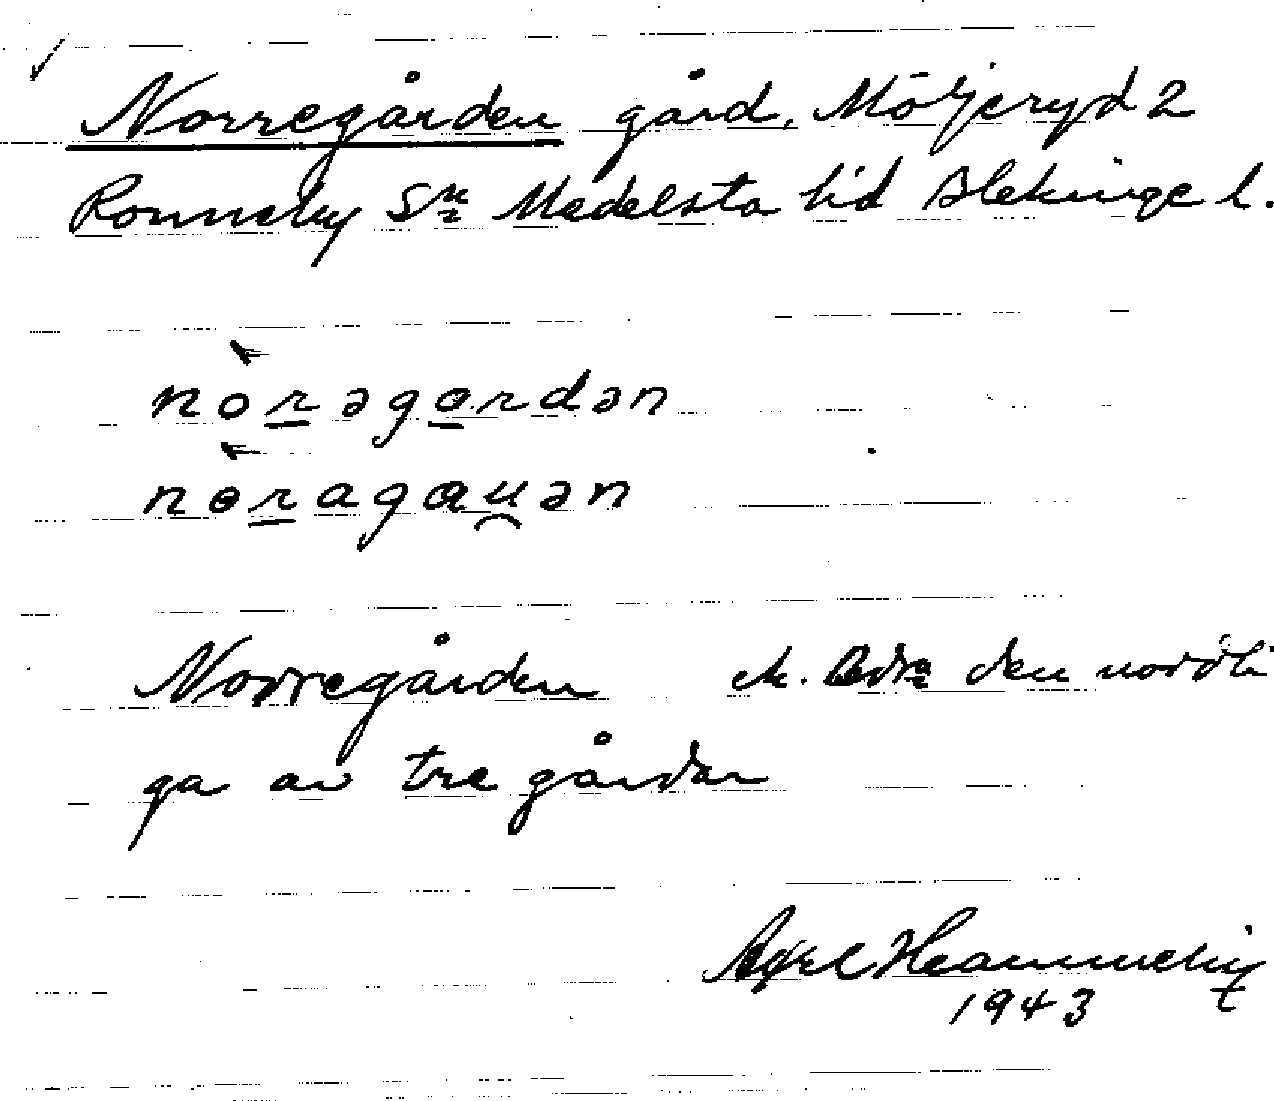 Norregården gård, Möljeryd 2
Ronneby Sn Medelsta hd Blekinge l.
nòrəgardən
nɵ̀ragau̯ən
Norregården den nordli
ga av tre gårdar
Axel
1943